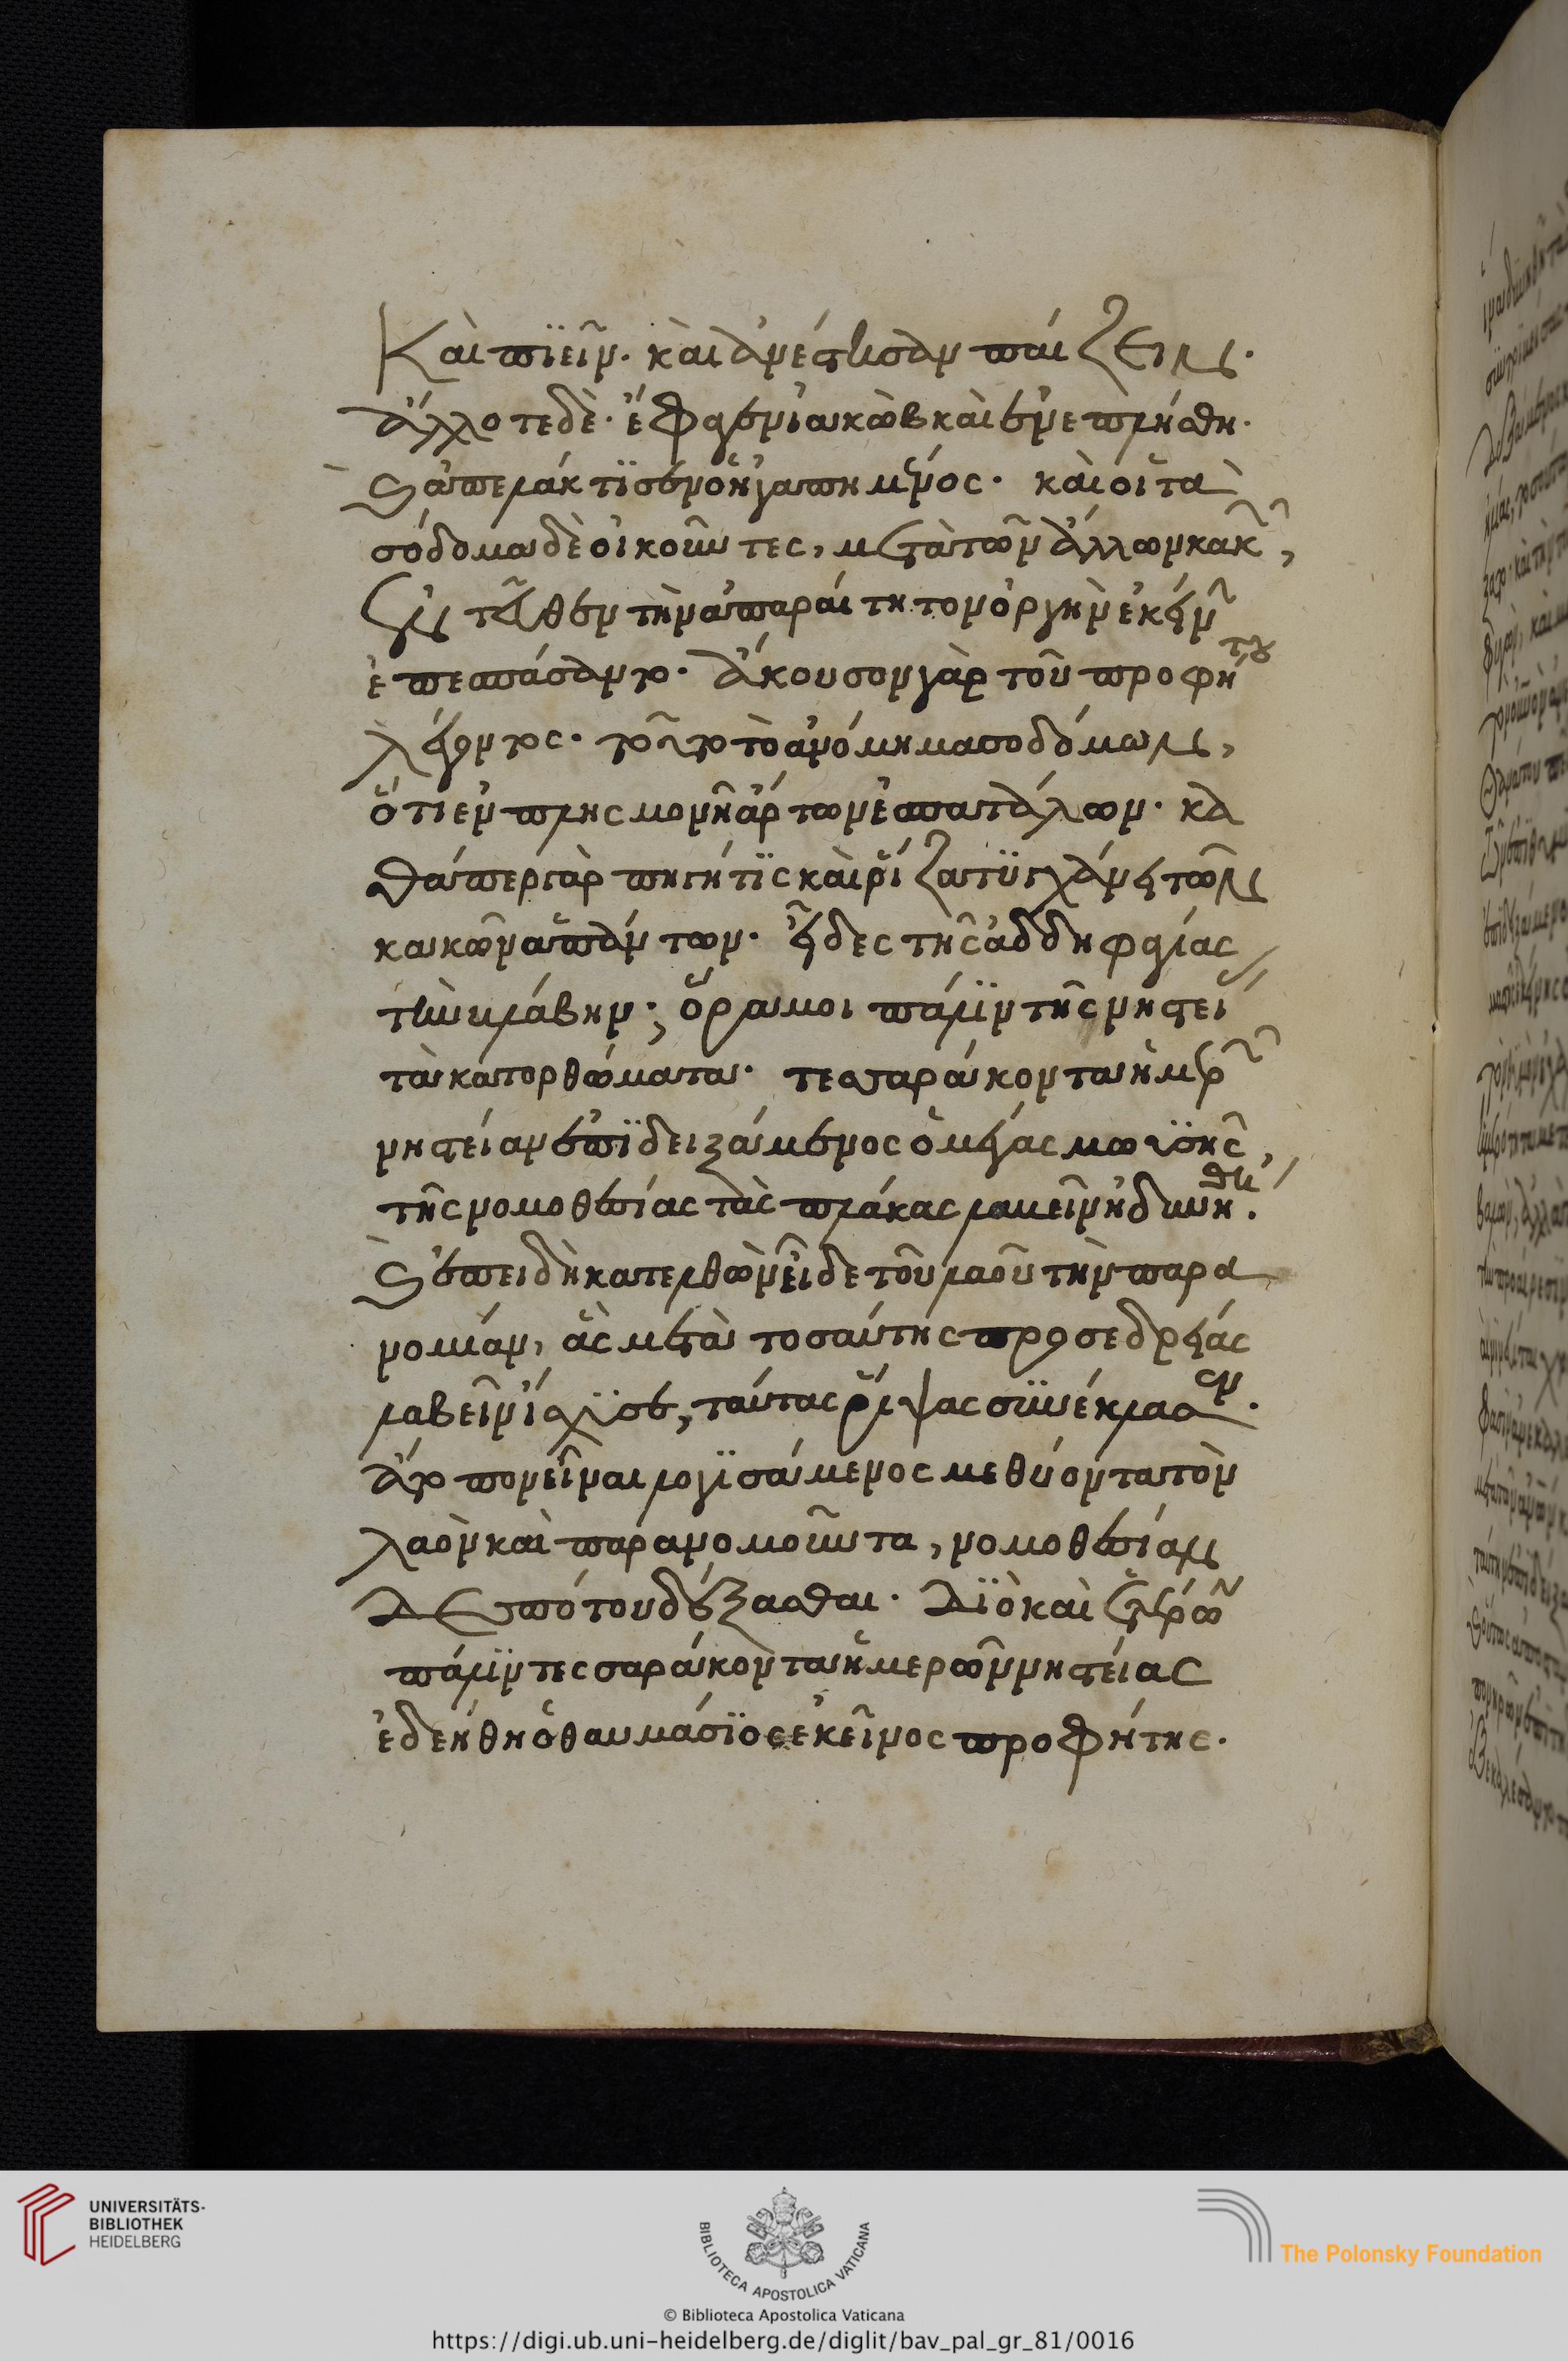 Καὶ πϊεῖν. καὶ ἀνέστησαν παίζειν.
ἄλλοτε δὲ. ἔφαγεν ἰακὼβ καὶ ἐνεπλήσθη.
καὶ ἀπελάκτϊσεν ὁ ἠγαπημένος. καὶ οἱ τὰ
σόδομα δὲ οἰκοῦντες, μετὰ τῶν ἄλλων κακῶν,
ἐντεῦθεν τὴν ἀπαραίτητον ὀργὴν ἐκείνην
ἐπεσπάσαντο. ἄκουσον γὰρ τοῦ προφήτου
λέγοντος. τοῦτο τὸ ἀνόμημα σοδόμων,
ὅτι ἐν πλησμονῇ ἄρτων ἐσπατάλων. κα
θάπερ γὰρ πηγή τϊς καὶ ῥίζα τϋγχάνει τῶν
κακῶν ἁπάντων. εἶδες τῆς ἀδδηφαγίας
τὴν βλάβην; ὅρα μοι πάλϊν τῆς νηστεί
τὰ κατορθώματα. τεσσαράκοντα ἡμερῶν
νηστείαν ἐπϊδειξάμενος ὁ μέγας μωϋσῆς,
τῆς νομοθεσίας τὰς πλάκας λαβεῖν ἠδυνήθη.
καὶ ἐπειδὴ κατελθὼν εἶδε τοῦ λαοῦ τὴν παρα
νομίαν, ἃς μετὰ τοσαύτης προσεδρείας
λαβεῖν ἴσχϋσε, ταύτας ῥίψας συνέκλασεν.
ἄτοπον εἶναι λογϊσάμενος μεθύοντα τὸν
λαὸν καὶ παρανομοῦντα, νομοθεσίαν
δεσπότου δέξασθαι. Δϊὸ καὶ ἑτέρων
πάλϊν τεσσαράκοντα ἡμερῶν νηστείας
ἐδεήθη ὁ θαυμάσϊος ἐκεῖνος προφήτης.
UNIVERSITÄTS-
BIBLIOTHEK
HEIDELBERG
BIBLIOTECA APOSTOLICA VATICANA
The Polonsky Foundation
© Biblioteca Apostolica Vaticana
https://digi.ub.uni-heidelberg.de/diglit/bav_pal_gr_81/0016